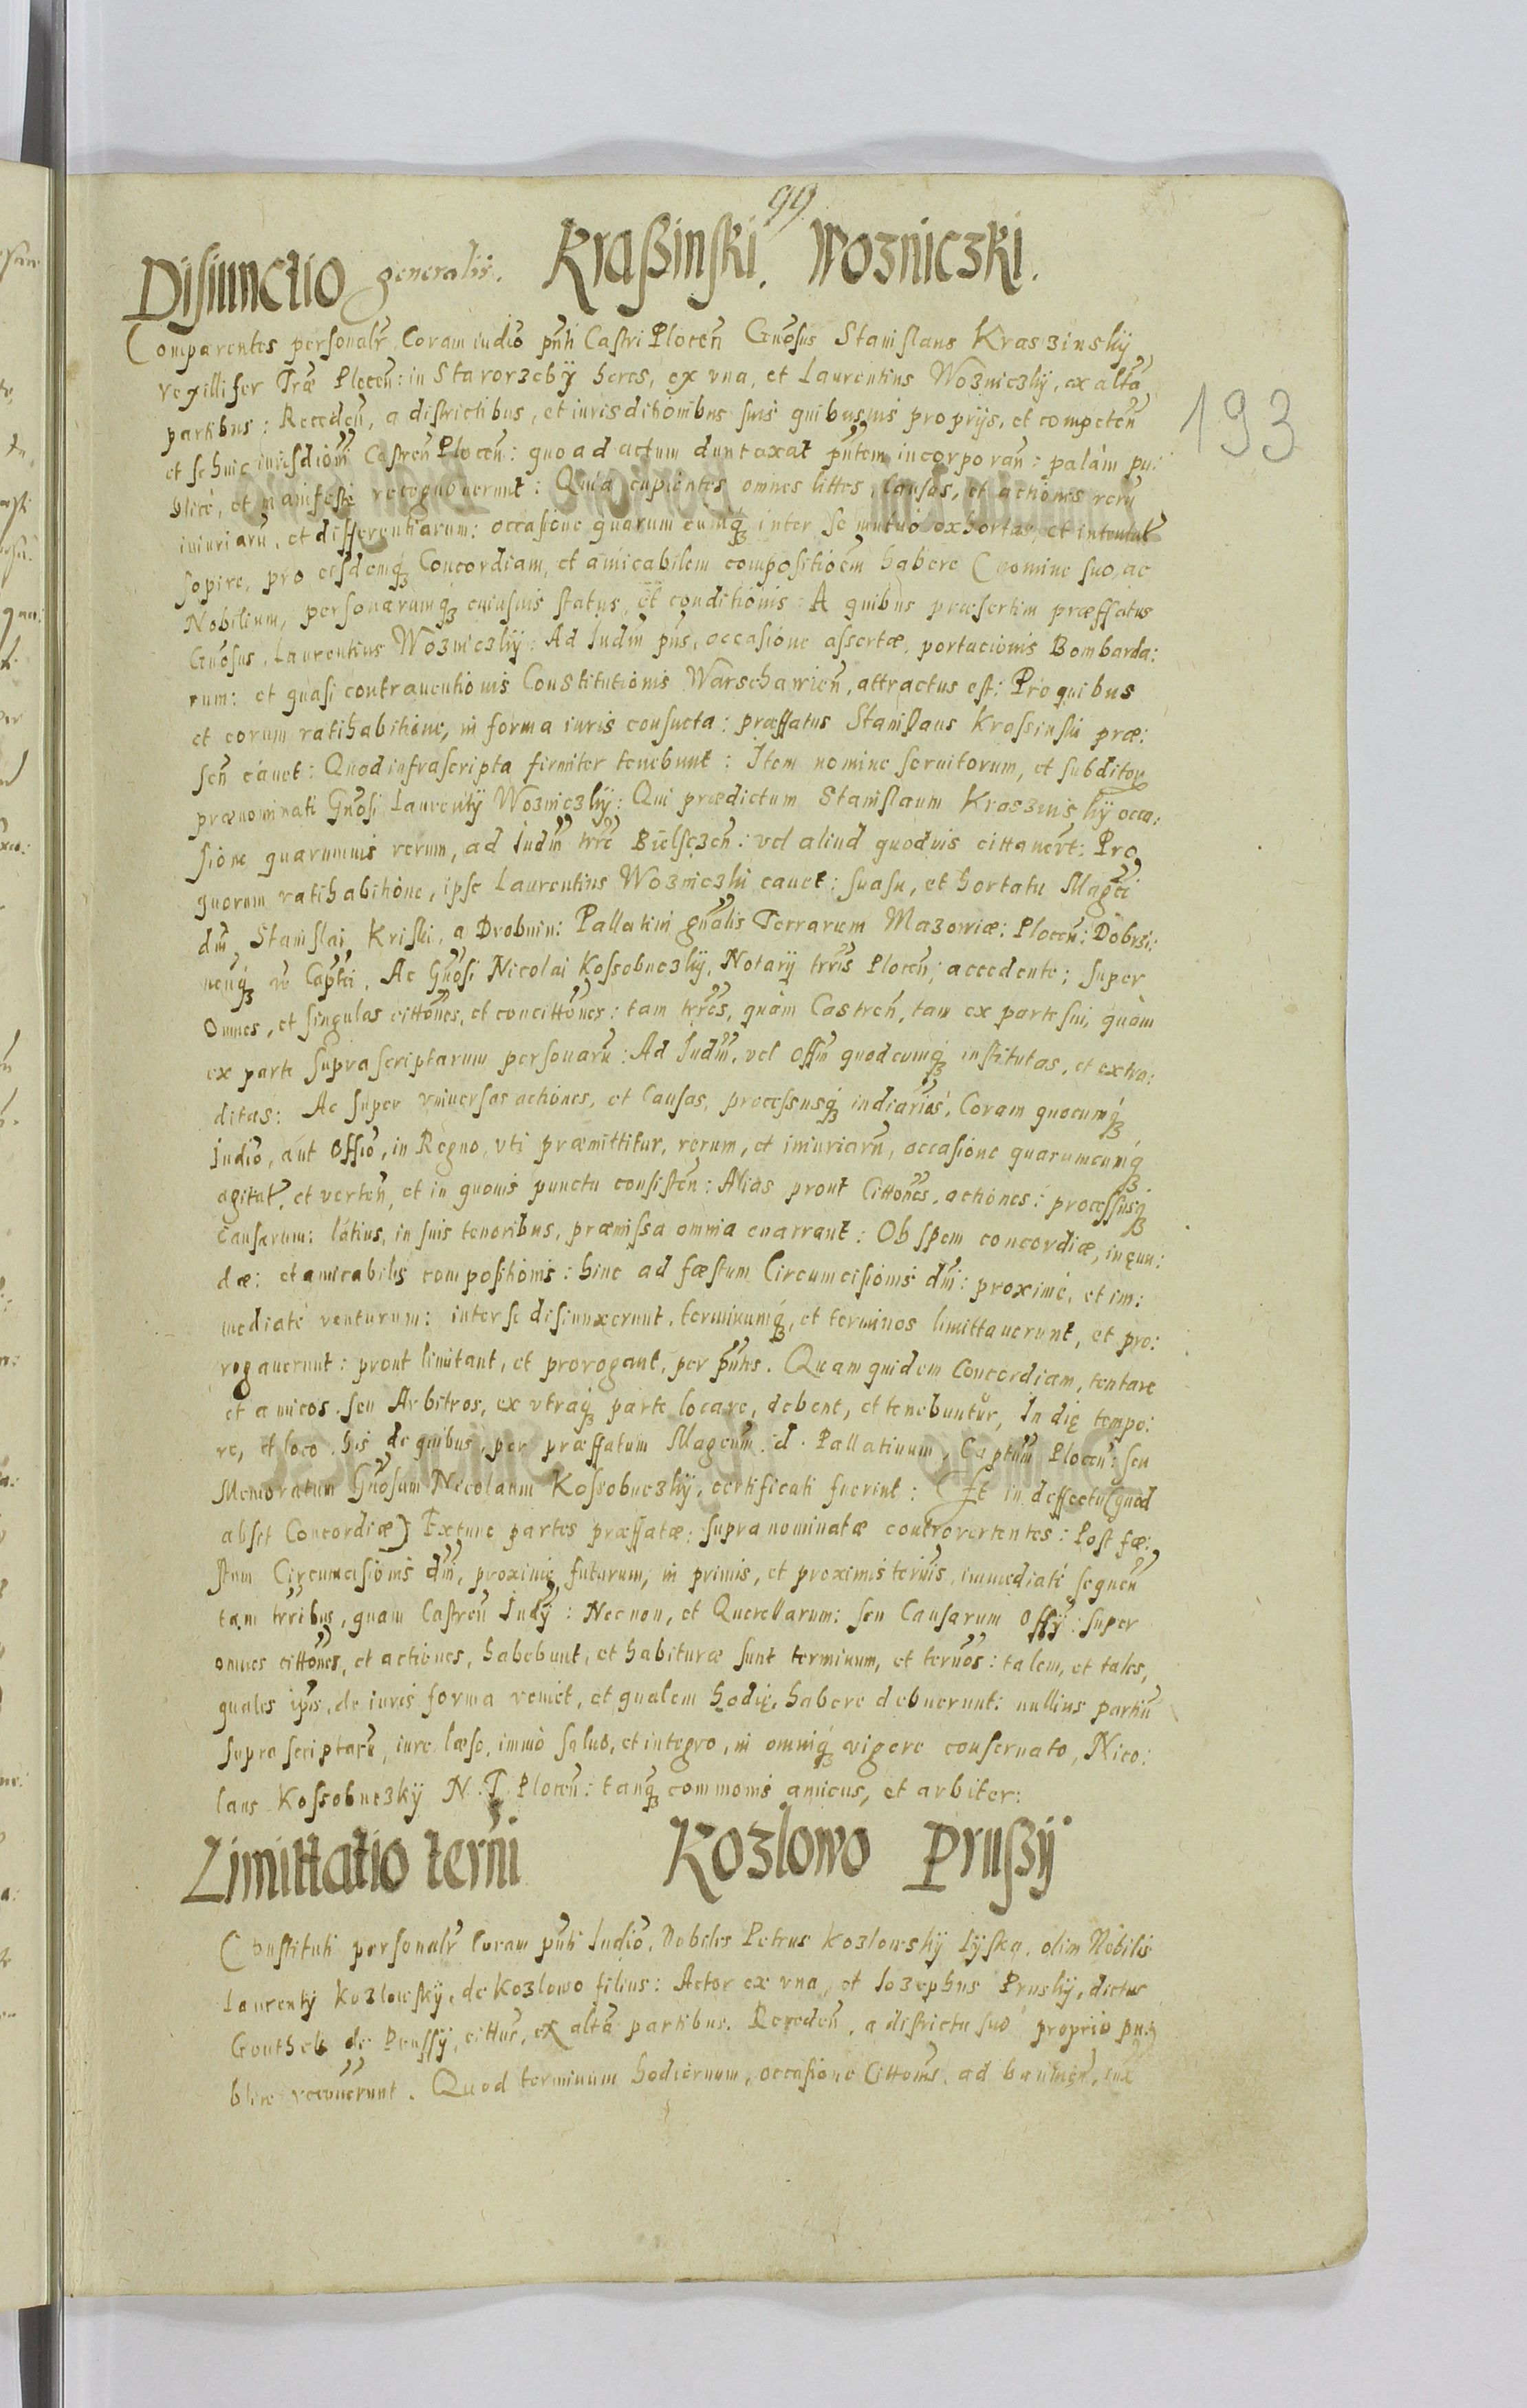 99
Disiunctio generalis. Kraßinski. Wozniczki.
Comparentes personalr̃ Coram iudiõ pñti Castri Plocen̄ Gñosus Stanislaus Kraszinskÿ
vexillifer Træ Plocen̄: in Starorzebÿ heres, ex vna, et Laurentius Wozniczkÿ, ex altã
partibus: Receden̄, a districtibus, et iurisditionibus suis quibusuis proprijs, et competen̄
et se huic iurisdiõni Castren̄ Plocen̄: quo ad actum duntaxat pñtem incorporan̄: palàm pu:
blicè, et manifestè recognouerunt: Quia cupientes omnes littes, Causas, et actiones rerũ
iniuriarũ, et differentiarum: occasione quarumcunqȝ inter se mutuò exhortas, et intentat̃
sopire, pro eisdemqȝ Concordiam, et amicabilem compositioẽm habere (nomine suo, ac
Nobilium, personarumqȝ cuiusuis status, et conditionis A quibus præsertim præffatus
Gñosus, Laurentius Wozniczkÿ: Ad Iudm̃ pñs, occasione assertæ, portacionis Bombarda:
rum: et quasi contrauentionis Constitutionis Warschawien̄, attractus est: Pro quibus
et eorum ratihabitione, in forma iuris consueta: præffatus Stanislaus Krassinski præ:
sen̄ cáuet: Quod infrascripta firmiter tenebunt: Item nomine seruitorum, et subditorȝ
prænominati Gñosi Laurentÿ Wozniczkÿ: Qui prædictum Stanislaum Kraszinskÿ occa:
sione quarumuis rerum, ad Iudm̃ trrẽ Bielsczen̄: vel aliud quoduis cittauer̃t: Pro
quorum ratihabitione, ipse Laurentius Wozniczki cauet: suasu, et hortatu Magci
dñi Stanislai Kriski, a Drobnin: Pallatini gñalis Terrarum Mazowiæ: Plocen̄: Dobrzi:
nenqȝ Captei. Ac Gñosi Nicolai Kossobuczkÿ, Notarij trris Plocen̄, accedente: super
Omnes, et singulas cittões, et concittões: tam trres, quàm Castren̄, tam ex parte sui, quàm
ex parte suprascriptarum personarũ: Ad Iudm̃, vel Offm̃ quodcumqȝ institutas, et extra:
ditas: Ac super vniuersas actiones, et Causas, processusqȝ iudiarios, Coram quocumqȝ
Iudiõ, aut Offiõ, in Regno, vti præmittitur, rerum, et iniuriarũ, occasione quarumcumqȝ
agitat̃, et verten̄, et in quouis punctu consisten̄: Aliàs prout Cittões, actiones: processusqȝ
Causarum: látius, in suis tenoribus, præmissa omnia enarrant: Ob spem concordiæ, ineun:
dæ: et amicabilis compositionis: hinc ad fæstum Circumcisionis dñi: proximè, et im:
mediatè venturum: inter se disiunxerunt, terminumqȝ, et terminos limittauerunt, et pro:
rogauerunt: prout limitant, et prorogant, per pñtes. Quam quidem Concordiam, tentare
et amicos, seu Arbitros, ex vtraqȝ parte locare, debent, et tenebuntur, In die tempo:
re, et loco. his de quibus, per præffatum Magcum d. Pallatinum, Captum̃ Plocen̄: seu
Memoratum Gñosum Nicolaum Kossobuczkÿ, certificati fuerint: Et in deffectu (quod
absit Concordiæ) Extunc partes præffatæ: supranominatæ controvertentes: Post fæ:
stum Circumcisionis dñi, proximè futurum, in primis, et proximis termis, immediatè sequen̄
tam trribus, quam Castren̄ Iudÿ: Necnon, et Querellarum: seu Causarum Offÿ: super
omnes cittões, et actiones, habebunt, et habituræ sunt terminum, et termos: talem, et tales,
quales ip̃is, de iuris forma veniet, et qualem hodie, habere debuerunt: nullius partiũ
suprascriptarũ, iure læso, immò saluo, et integro, in omniqȝ vigere conseruato, Nico:
laus Kossobuczkÿ N. T. Plocen̄: tanqȝ communis amicus, et arbiter:
Limittatio termi Kozlowo Prußÿ
Constituti personalr̃ Coram pñti Iudiõ, Nobiles Petrus Kozlowskÿ Lÿska, olim Nobilis
Laurentÿ Kozlowskÿ, de Kozlowo filius: Actor ex vna, et Iozephus Pruskÿ, dictus
de Prussÿ, cittus, ex altã partibus. Receden̄, a districtu suo proprio pu:
blice recouerunt. Quod terminum hodiernum, occasione Cittonis, ad
193